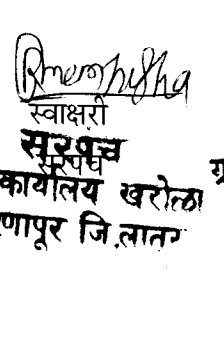 स्वाक्षरी
सरपंच
सरपंच
कार्यालय खरोळा
णापूर जि.लातूर